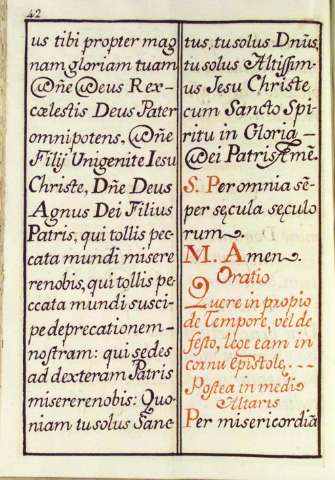 42
us tibi propter mag
nam gloriam tuam
Dñe Deus Rex—
cœlestis Deus Pater
omnipotens, Dñe
Filij Unigenite Iesu
Christe, Dñe Deus
Agnus Dei Filius
Patris, qui tollis pec
cata mundi misere
renobis, qui tollis pe
ccata mundi susci-
pe deprecationem—
nostram: qui sedes
ad dexteram Patris
misererenobis: Quo-
niam tu solus Sanc
tus, tu solus Dnũs,
tu solus Altissim-
us Jesu Christe
cum Sancto Spi-
ritu in Gloria—
Dei Patris Amẽ.
S. Per omnia sẽ-
per sęcula sęculo
rum.
M. Amen.
Oratio
Quere in propio
de Tempore, vel de
festo, lege eam in
cornu epistole.---
Postea in medio
Altaris
Per misericordiã